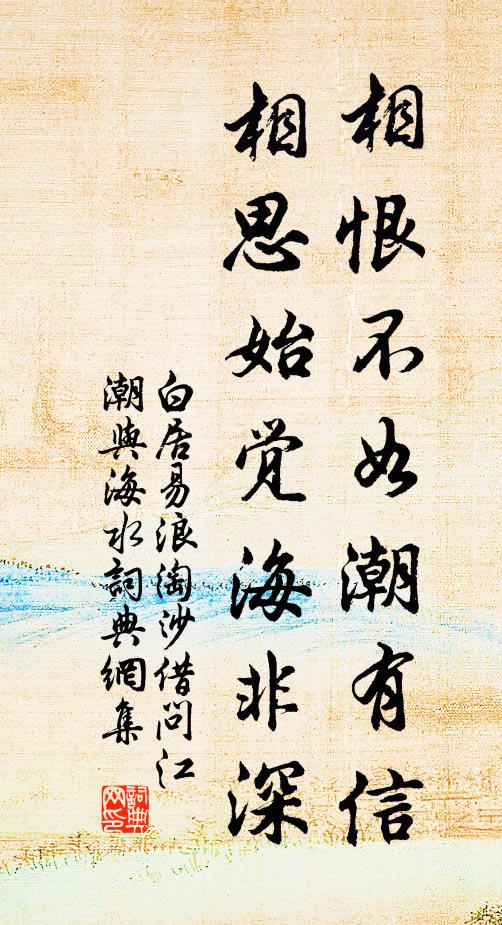 相恨不如潮有信
相思始觉海非深
白居易浪淘沙借问江
潮與海水詞典網集
詞典网印